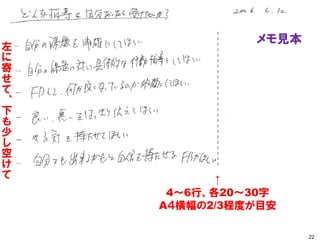 どんな指導を自分だったら受けたいか？ 2016 6.12
メモ見本
- 自分の課題を明確にしてほしい
- 自分の課題に対し具体的な行動指導をしてほしい
- FBして、何が良くなっているのか明確にしてほしい
- 良い、悪いをはっきり伝えてほしい
- やる気を持たせてほしい
- 自分でも出来るかもと自信を持たせるFBがほしい
左に寄せて、下も少し空けて
↑
4〜6行、各20〜30字
A4横幅の2/3程度が目安
22